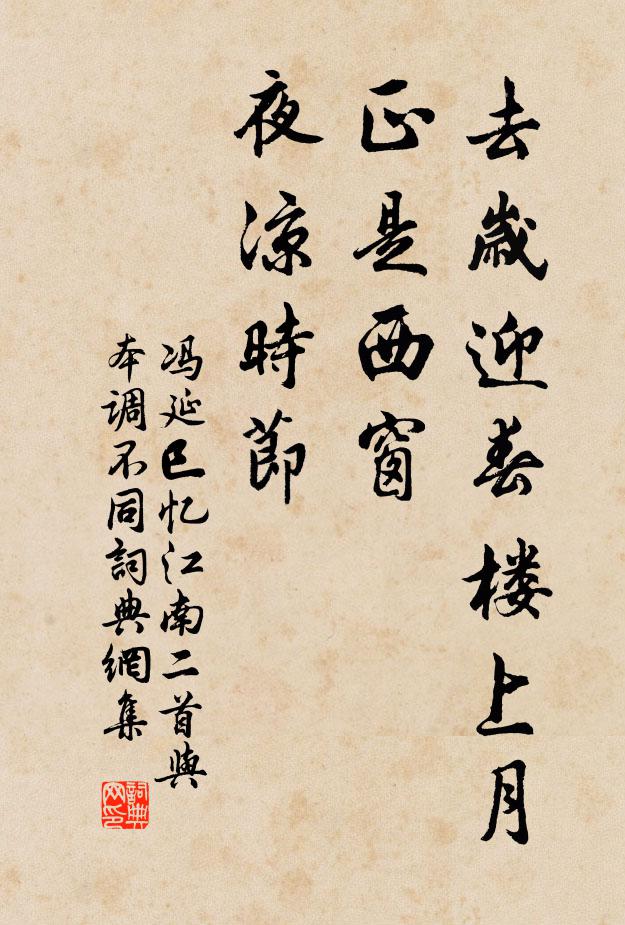 去歲迎春楼上月
正是西窗
夜涼時節
冯延巳忆江南二首與
本调不同詞典網集
詞典
网印